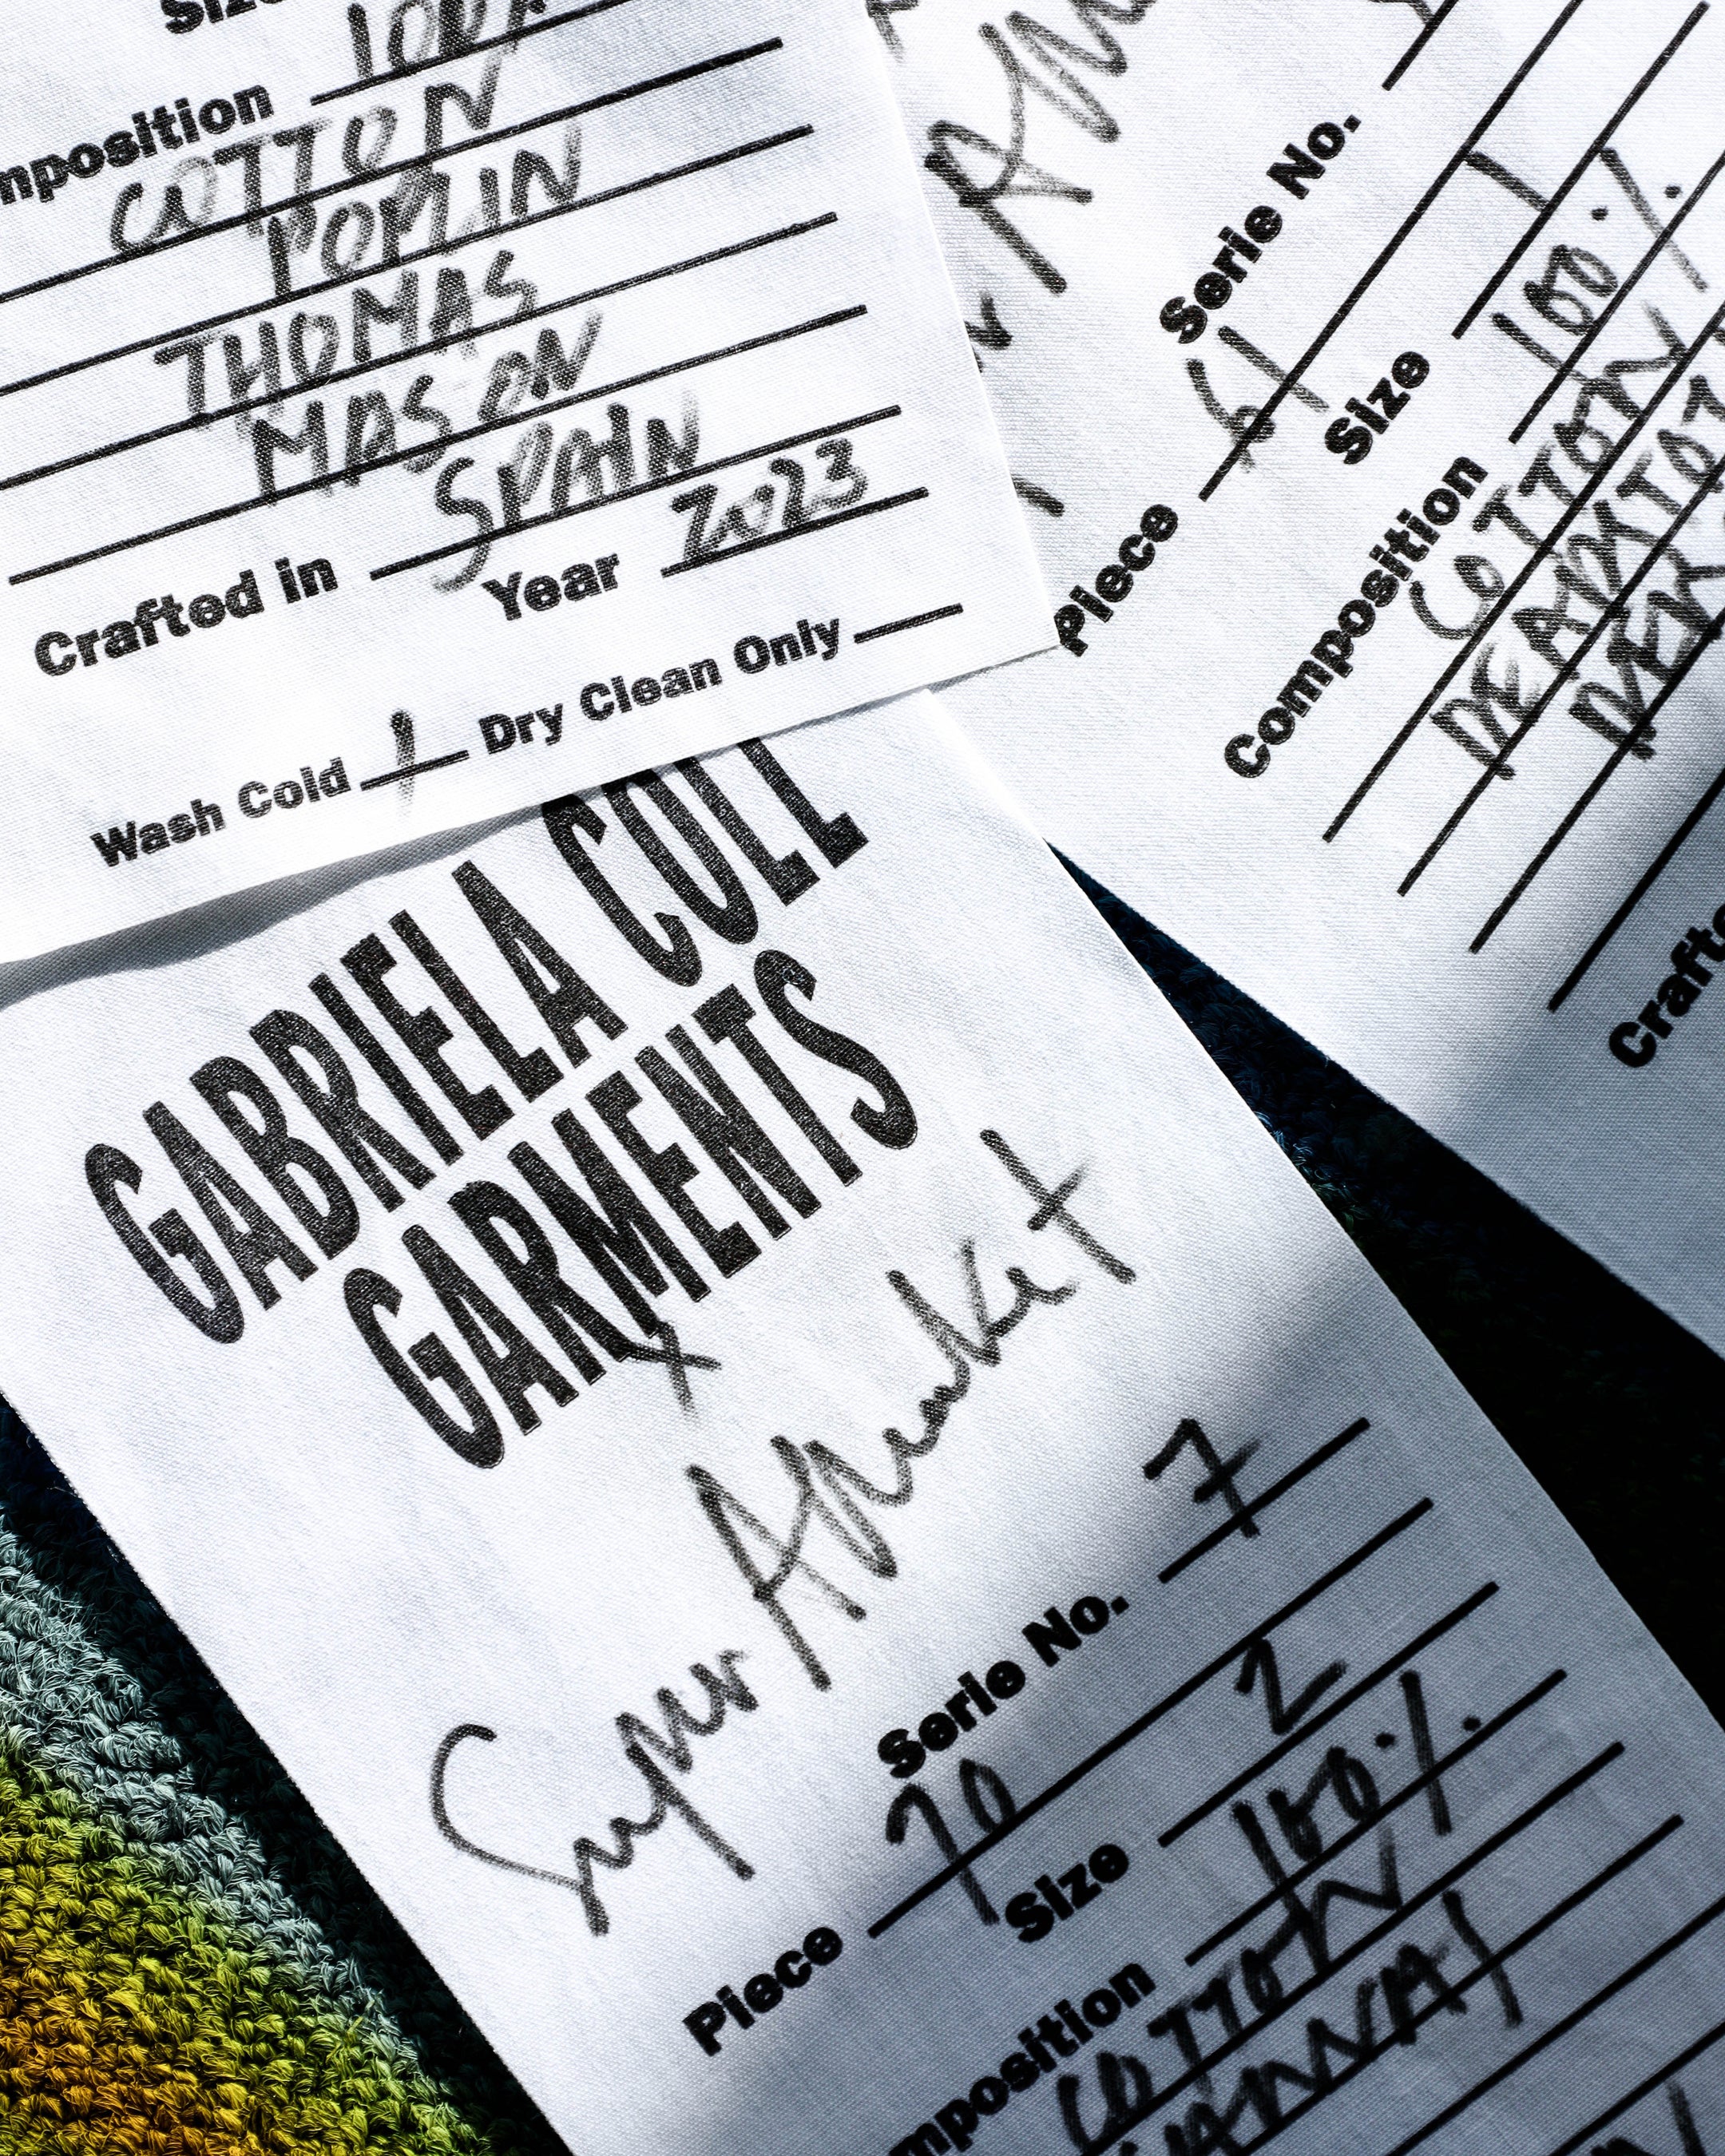 Size
Composition 100%
COTTON
POPLIN
THOMAS
MASON
Crafted in SPAIN
Year 2023
Wash Cold / Dry Clean Only
Serie No.
Piece 61
Size 1
Composition 100%
COTTON
Crafte
GABRIELA COLL
GARMENTS
x
Super
Serie No. 7
Piece 70
Size 2
mposition 100%
COTTON